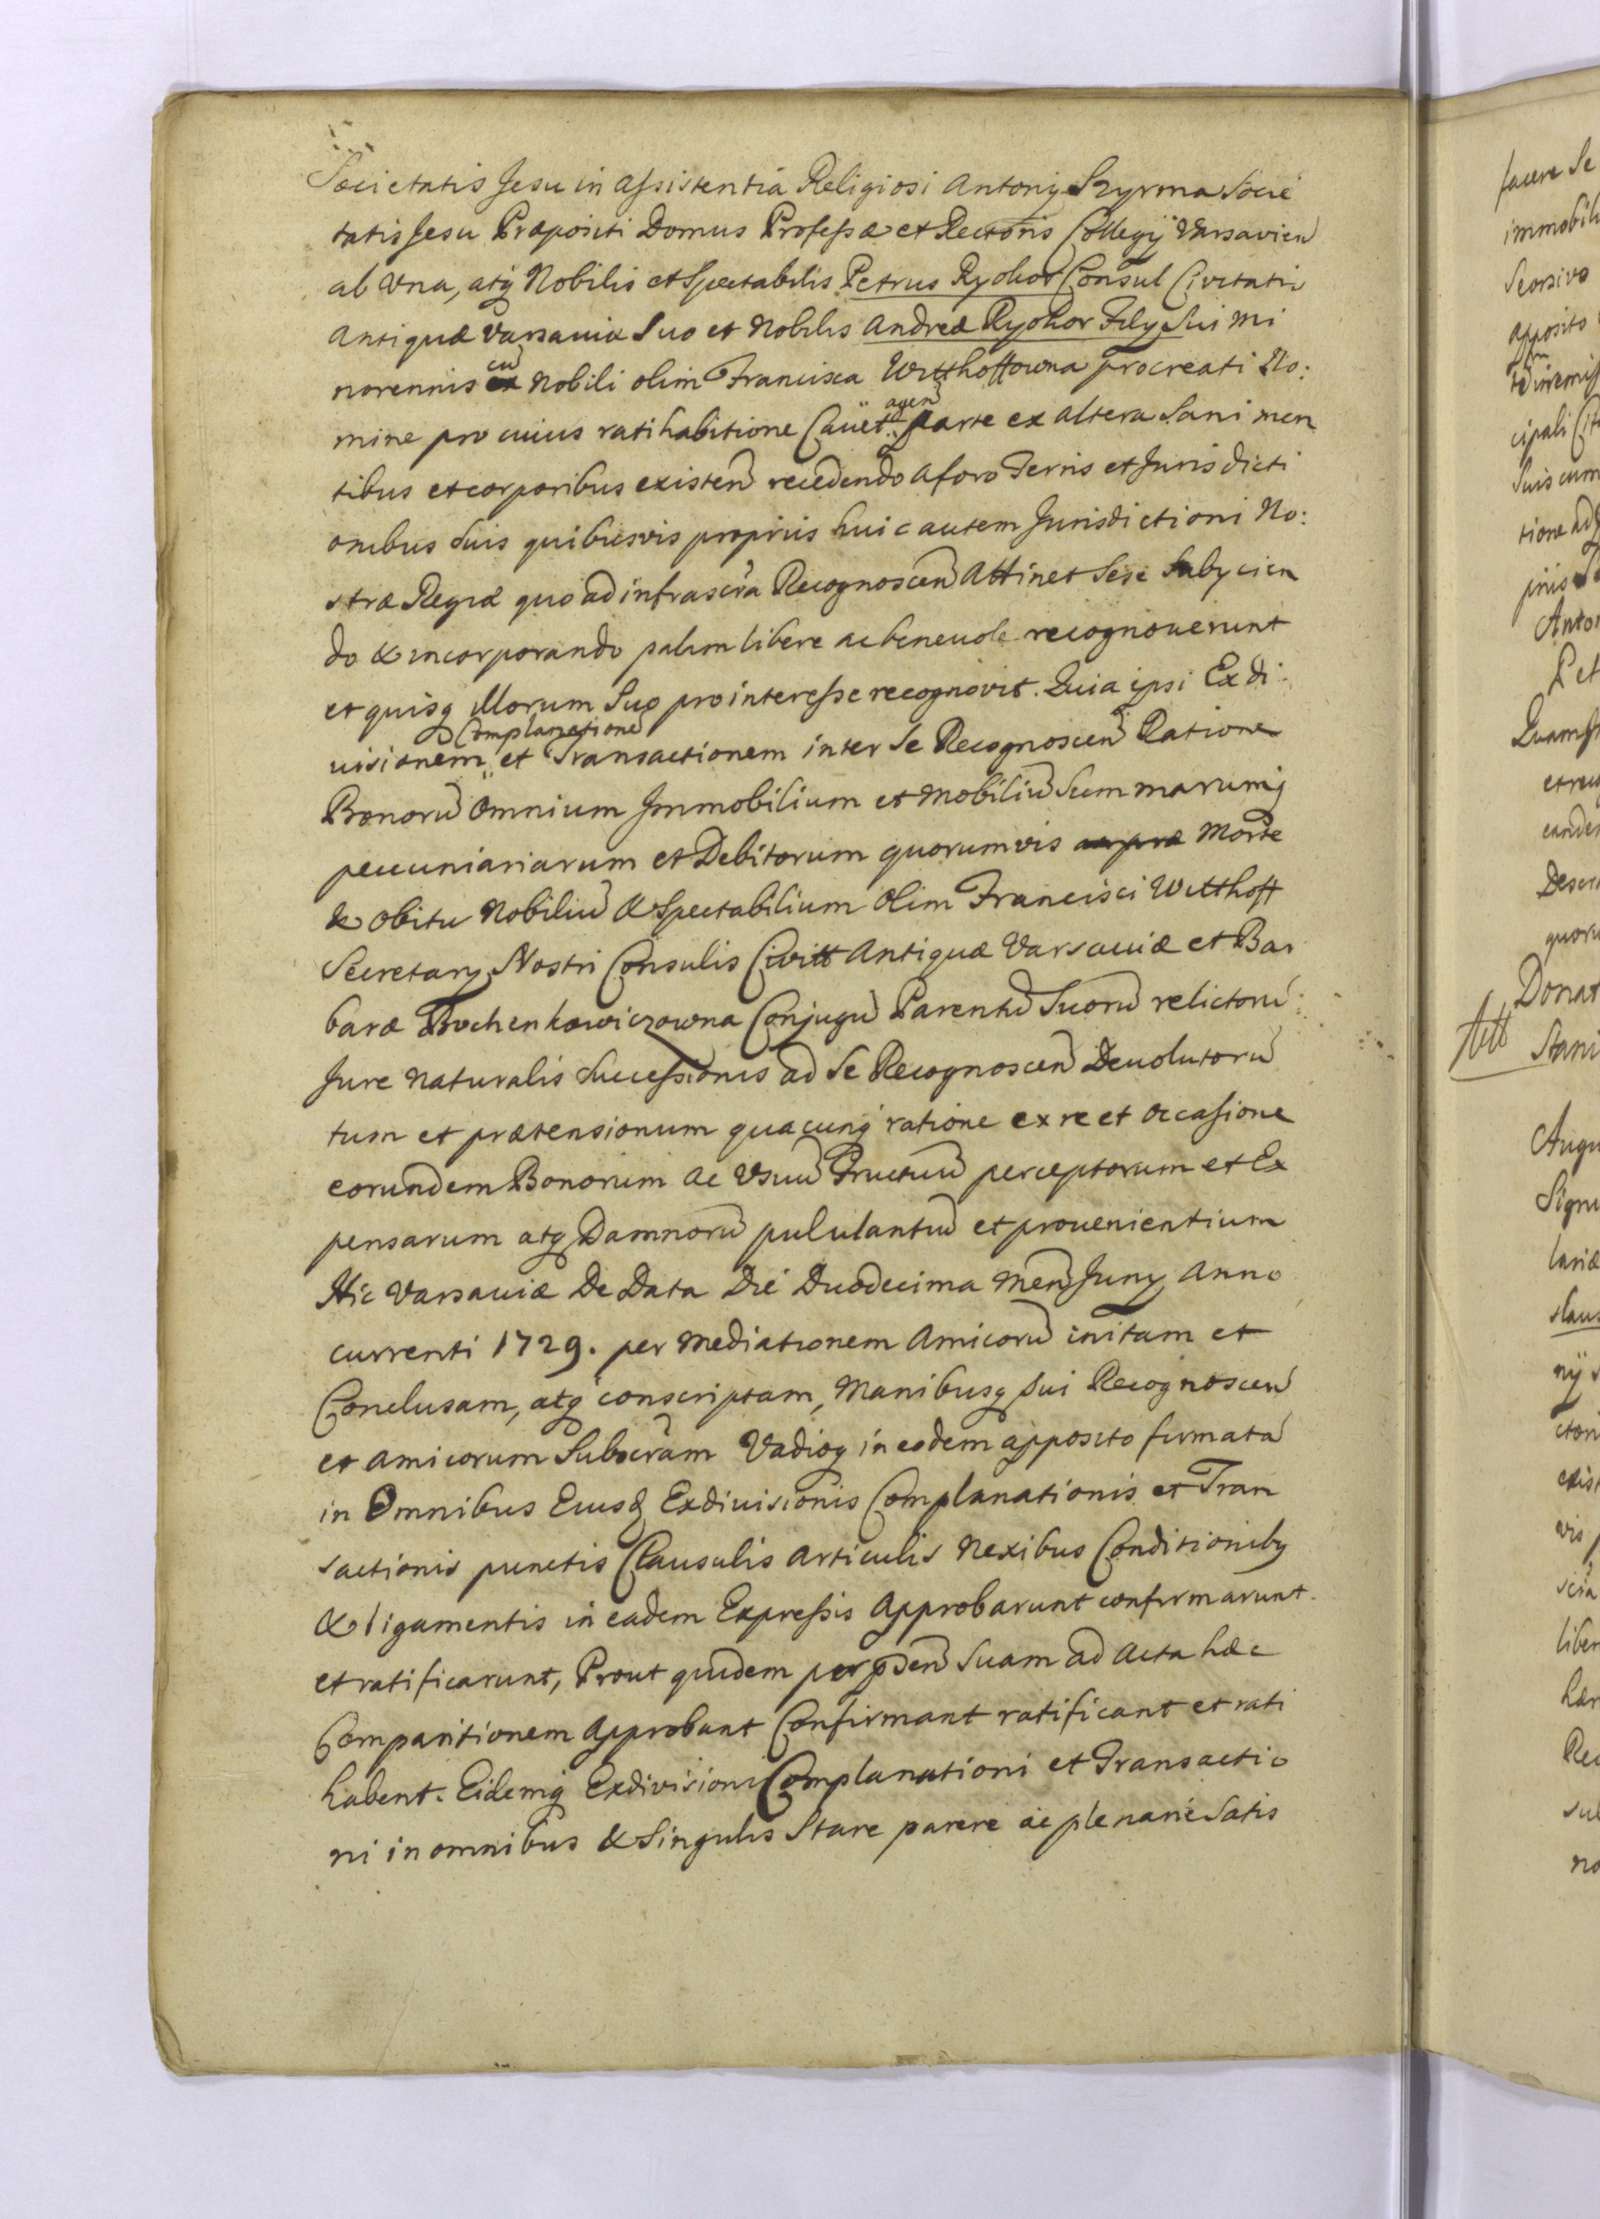 Societatis Jesu in assistentia Religiosi Antonij Szyrma Socie
tatis Jesu Præpositi Domus Professæ et Rectoris Collegij Varsavien
ab Vna, atq Nobilis et Spectabilis Petrus Ryohor Consul Civitatis
Antiquæ Varsaviæ Suo et Nobilis Andreæ Ryohor Filij Sui mi
cu
norennis ex Nobili olim Francisca Witthoffowna procreati No:
agen
mine pro cuius ratihabitione Cavet parte ex altera Sani men
tibus et corporibus existen recedendo a foro Terris et Jurisdicti
onibus suis quibusvis proprius huic autem Jurisdictioni No:
stræ Regiæ quo ad infrascra Recognoscen attinet Sese Subijcien
do & incorporando palam libere ac benevole recognoverunt
et quisq Illorum Suo pro interesse recognovit. Quia ipsi Exdi
Complanatione
visionem et Transactionem inter Se Recognoscen Ratione
Bonoru Omnium Immobilium et Mobiliu Summarumq
pecuniariarum et Debitorum quorumvis Morte
& obitu Nobiliu & Spectabilium Olim Francisci Witthoff
Secretarij Nostri Consulis Civitt Antiquæ Varsaviæ et Bar
baræ Bochenkowiczowna Conjugu Parentu Suoru relictoru
Jure Naturalis Successionis ad Se Recognoscen Devolutoru
tum et prætensionum quacunq ratione ex re et occasione
eorundem Bonorum ac Vsuu Fructuu perceptorum et Ex
pensarum atq Damnoru pululantiu et provenientium
Hic Varsaviæ De Data Die Duodecima Men Junij Anno
currenti 1729. per Mediationem Amicoru initam et
Conclusam, atq conscriptam, Manibusq sui Recognoscen
et Amicorum Subscram Vadioq in eodem apposito firmata
in Omnibus Eiusd Exdivisionis Complanationis et Tran
sactionis punctis Clausulis Articulis Nexibus Conditionibq
& ligamentis in eadem Expressis Approbarunt confirmarunt
et ratificarunt, Prout quidem per psen Suam ad Acta hæc
Comparitionem Approbant Confirmant ratificant et rati
habent. Eidemq Exdivisioni Complanationi et Transactio
ni in omnibus & Singulis Stare parere ac plenarie Satis